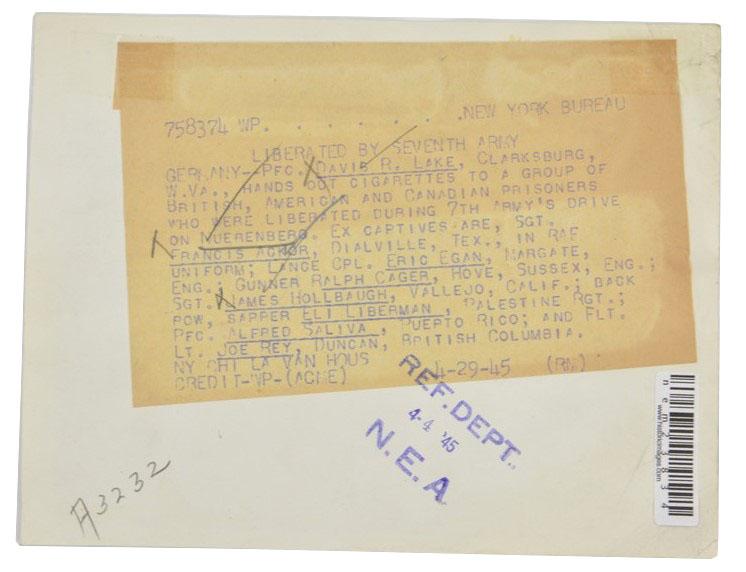 758374 WP. . . . . . . .NEW YORK BUREAU
LIBERATED BY SEVENTH ARMY
GERMANY--PFC. DAVIS R. LAKE, CLARKSBURG,
W.VA., HANDS OUT CIGARETTES TO A GROUP OF
BRITISH, AMERICAN AND CANADIAN PRISONERS
WHO WERE LIBERATED DURING 7TH ARMY'S DRIVE
ON NUERENBERG. EX CAPTIVES ARE, SGT.
FRANCIS ACKOR, DIALVILLE, TEX., IN RAF
UNIFORM; LANCE CPL. ERIC EGAN, MARGATE,
ENG.; GUNNER RALPH CAGER, HOVE, SUSSEX, ENG.;
SGT. JAMES HOLLBAUGH, VALLEJO, CALIF.; BACK
ROW, SAPPER ELI LIBERMAN, PALESTINE RGT.;
PFC. ALFRED SALIVA, PUERTO RICO; AND FLT.
LT. JOE REY, DUNCAN, BRITISH COLUMBIA.
NY CHI LA VAN HOUS
CREDIT-WP-(ACME) 4-29-45 (RM)
REF. DEPT.
4-4 '45
N.E.A
A3232
www.historicimages.com
nem23834